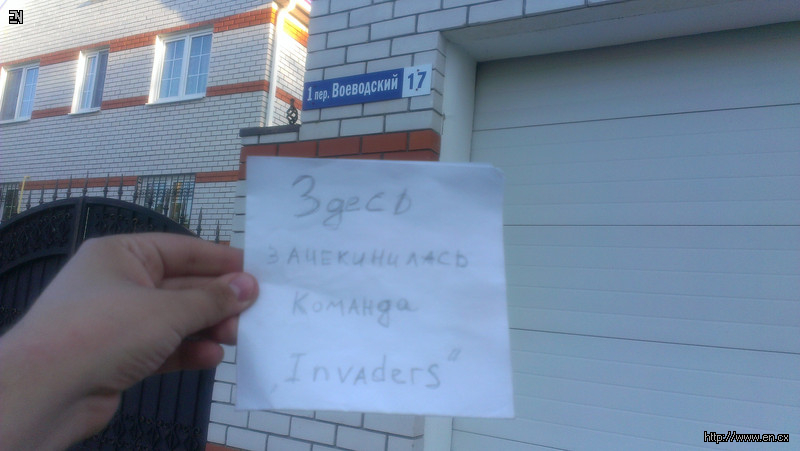 EN
1 пер. Воеводский 17
Здесь
зачекинилась
команда
„Invaders"
http://www.en.cx